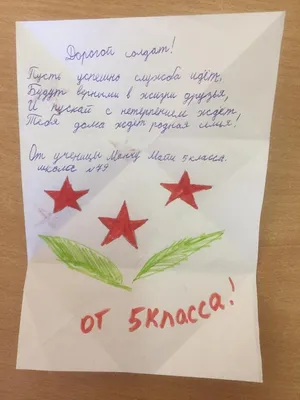 Дорогой солдат!
Пусть успешно служба идёт,
Будут верными в жизни друзья,
И пускай с нетерпением ждёт
Тебя дома ждёт родная семья!
От ученицы 5 класса.
школы №79
от 5 класса!